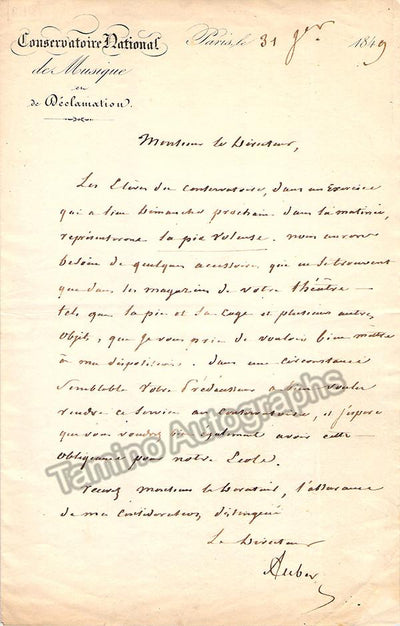 Conservatoire National
de Musique
et
de Déclamation.
Paris, le 31 1849
Monsieur le Directeur,
Les Elèves du Conservatoire, dans un Exercice
qui a lieu Dimanche prochain dans la matinée,
représenteront la pie voleuse. nous aurons
besoin de quelques accessoires, qui ne se trouvent
que dans les magazins de votre théâtre
tels que la pie et sa cage et plusieurs autres
objets, que je vous prie de vouloir bien mettre
à ma disposition. dans une circonstance
semblable votre Prédécesseur a bien voulu
rendre ce service au Conservatoire, et j'espère
que vous voudrez également avoir cette
obligeance pour notre Ecole.
recevez monsieur le Directeur, l'assurance
de ma considération distinguée
Le Directeur
Auber
Tamino Autographs